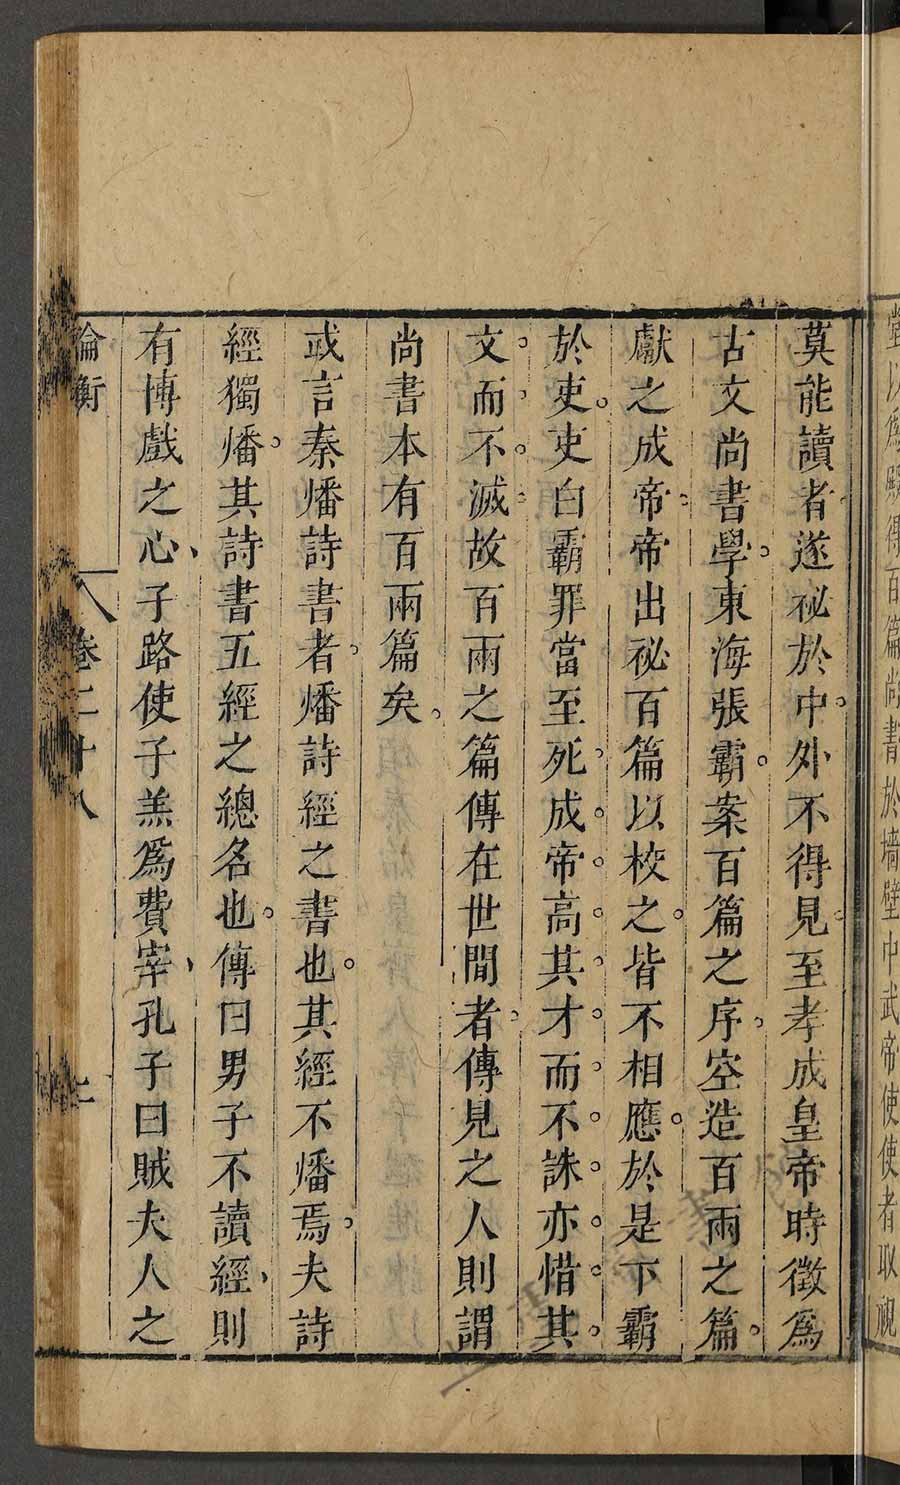 堂以爲殿得百篇尚書於墻壁中武帝使使者取視
莫能讀者遂祕於中外不得見至孝成皇帝時徵爲
古文尚書學東海張霸案百篇之序空造百兩之篇
獻之成帝帝出祕百篇以校之皆不相應於是下霸
於吏吏白霸罪當至死成帝高其才而不誅亦惜其
文而不滅故百兩之篇傳在世間者傳見之人則謂
尚書本有百兩篇矣
或言秦燔詩書者燔詩經之書也其經不燔焉夫詩
經獨燔其詩書五經之總名也傳曰男子不讀經則
有博戲之心子路使子羔爲費宰孔子曰賊夫人之
論衡 卷二十八